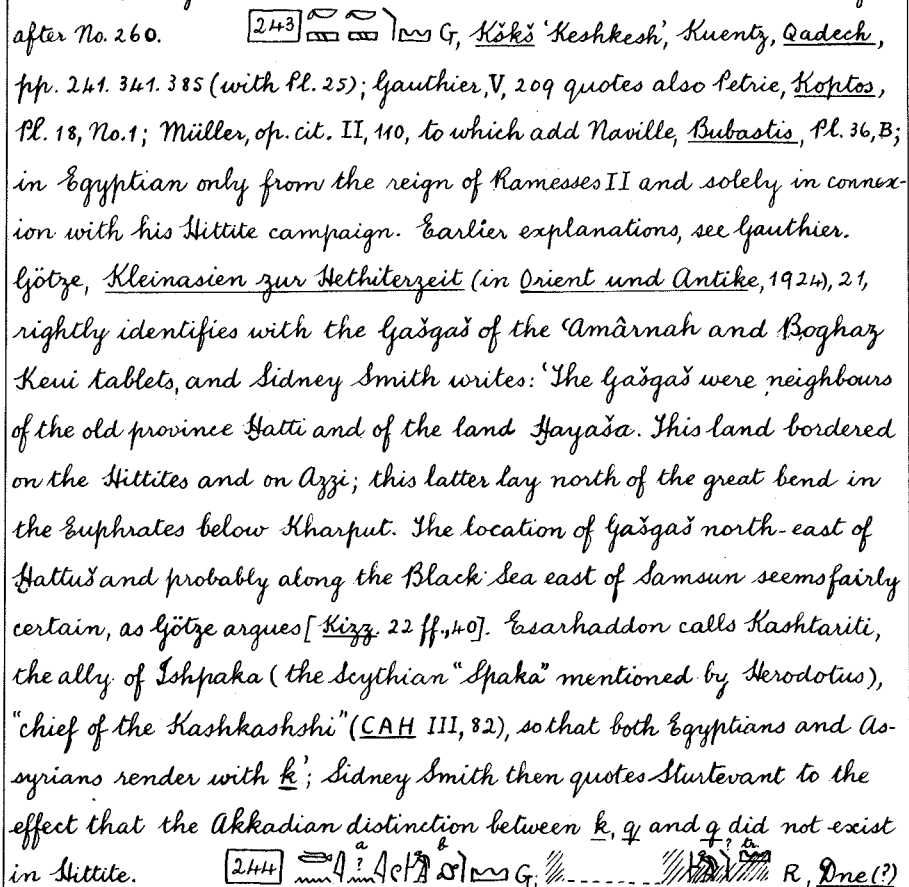 after No. 260. 243 G, Kškš 'Keshkesh', Kuentz, Qadech,
pp. 241. 341. 385 (with Pl. 25); Gauthier, V, 209 quotes also Petrie, Koptos,
Pl. 18, No. 1; Müller, op. cit. II, 110, to which add Naville, Bubastis, Pl. 36, B;
in Egyptian only from the reign of Ramesses II and solely in connex-
ion with his Hittite campaign. Earlier explanations, see Gauthier.
Götze, Kleinasien zur Hethiterzeit (in Orient und Antike, 1924), 21,
rightly identifies with the Gašgaš of the ʿAmârnah and Boghaz
Keui tablets, and Sidney Smith writes: 'The Gašgaš were neighbours
of the old province Ḫatti and of the land Ḫayaša. This land bordered
on the Hittites and on Azzi; this latter lay north of the great bend in
the Euphrates below Kharput. The location of Gašgaš north-east of
Ḫattuš and probably along the Black Sea east of Samsun seems fairly
certain, as Götze argues [Kizz. 22 ff., 40]. Esarhaddon calls Kashtariti,
the ally of Ishpaka (the Scythian "Spaka" mentioned by Herodotus),
"chief of the Kashkashshi" (CAH III, 82), so that both Egyptians and As-
syrians render with k'; Sidney Smith then quotes Sturtevant to the
effect that the Akkadian distinction between k, q and g did not exist
in Hittite. 244 G, R, Dne(?)